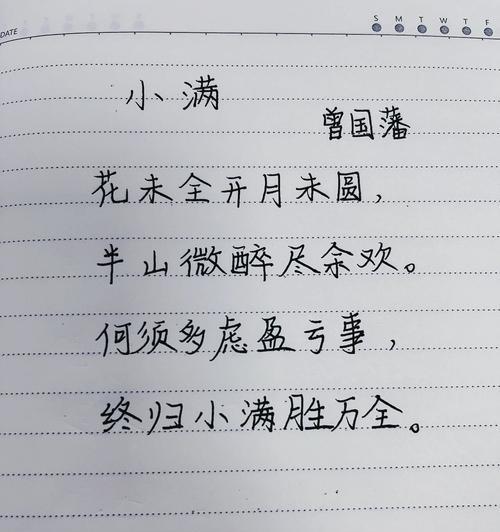 DATE
S M T W T F
小满
曾国藩
花未全开月未圆，
半山微醉尽余欢。
何须多虑盈亏事，
终归小满胜万全。